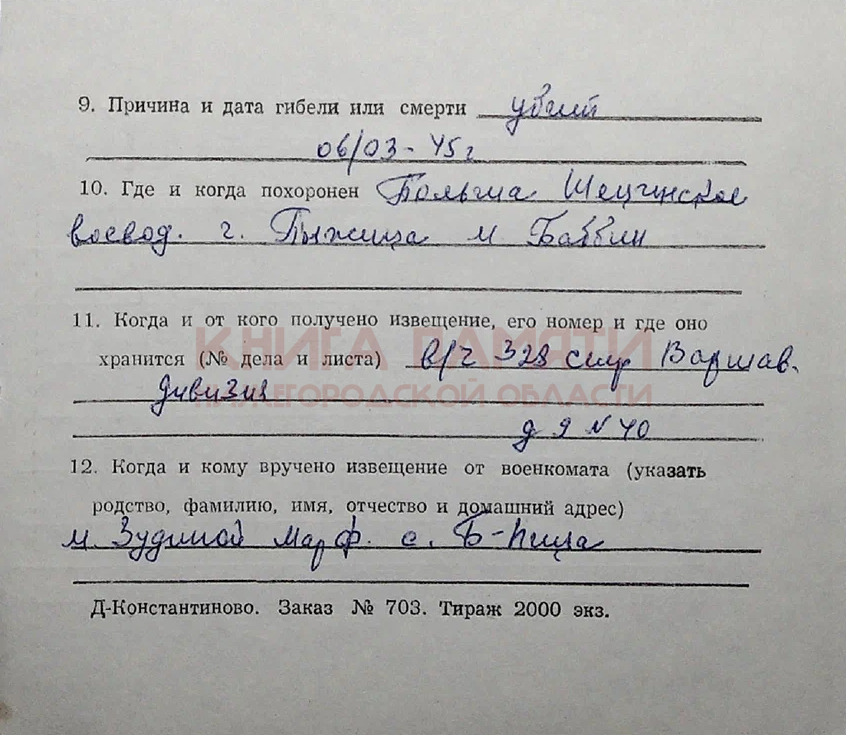 9. Причина и дата гибели или смерти убит
06/03-45г
10. Где и когда похоронен Польша Щецинское
воевод. г. Пыжица м Баббин
11. Когда и от кого получено извещение, его номер и где оно
КНИГА ПАМЯТИ
хранится (№ дела и листа) в/ч 328 сп Варшав.
дивизия
НИЖЕГОРОДСКОЙ ОБЛАСТИ
N 40
12. Когда и кому вручено извещение от военкомата (указать
родство, фамилию, имя, отчество и домашний адрес)
м. Зудиной Марф. с. Б-Пица
Д-Константиново. Заказ № 703. Тираж 2000 экз.